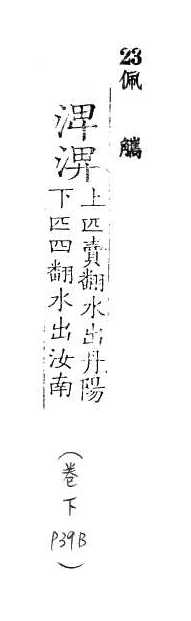 23
佩觿
渒淠
上匹賣翻水出丹陽
下匹四翻水出汝南
（卷下P39B）